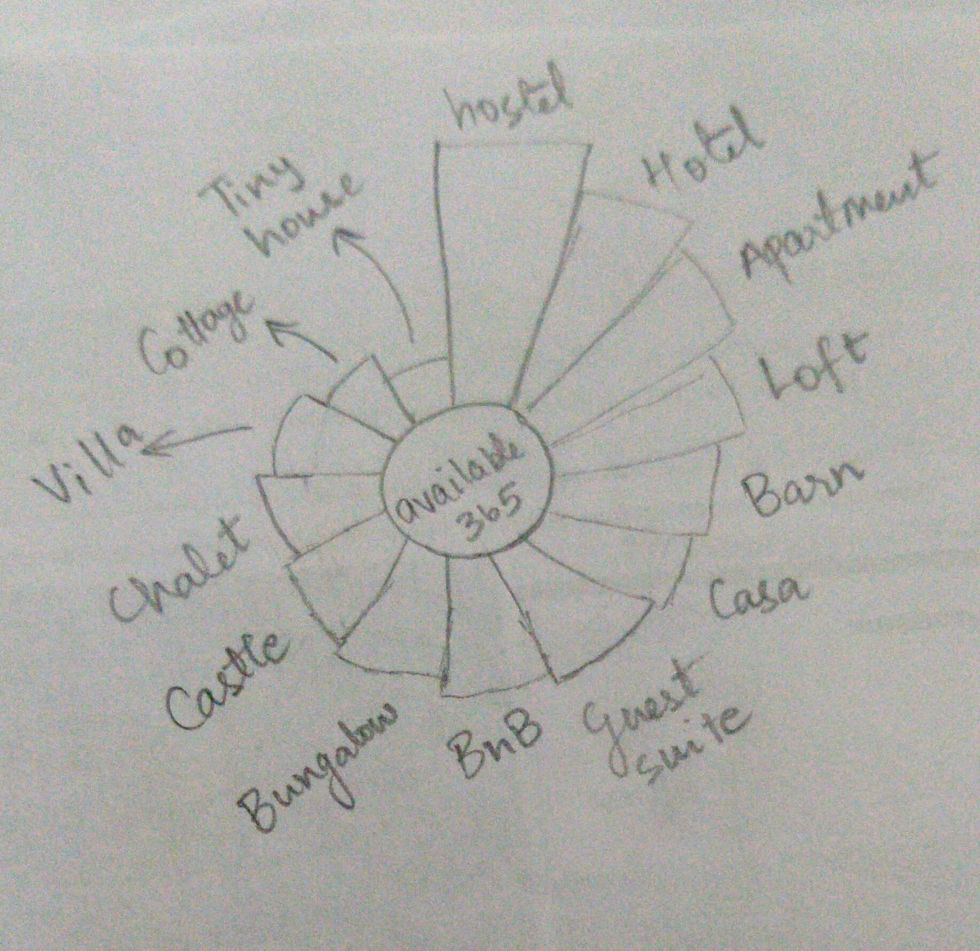 hostel
Hotel
Apartment
Loft
Barn
Casa
Guest
suite
BnB
Bungalow
Castle
Chalet
Villa
Cottage
Tiny
house
available
365